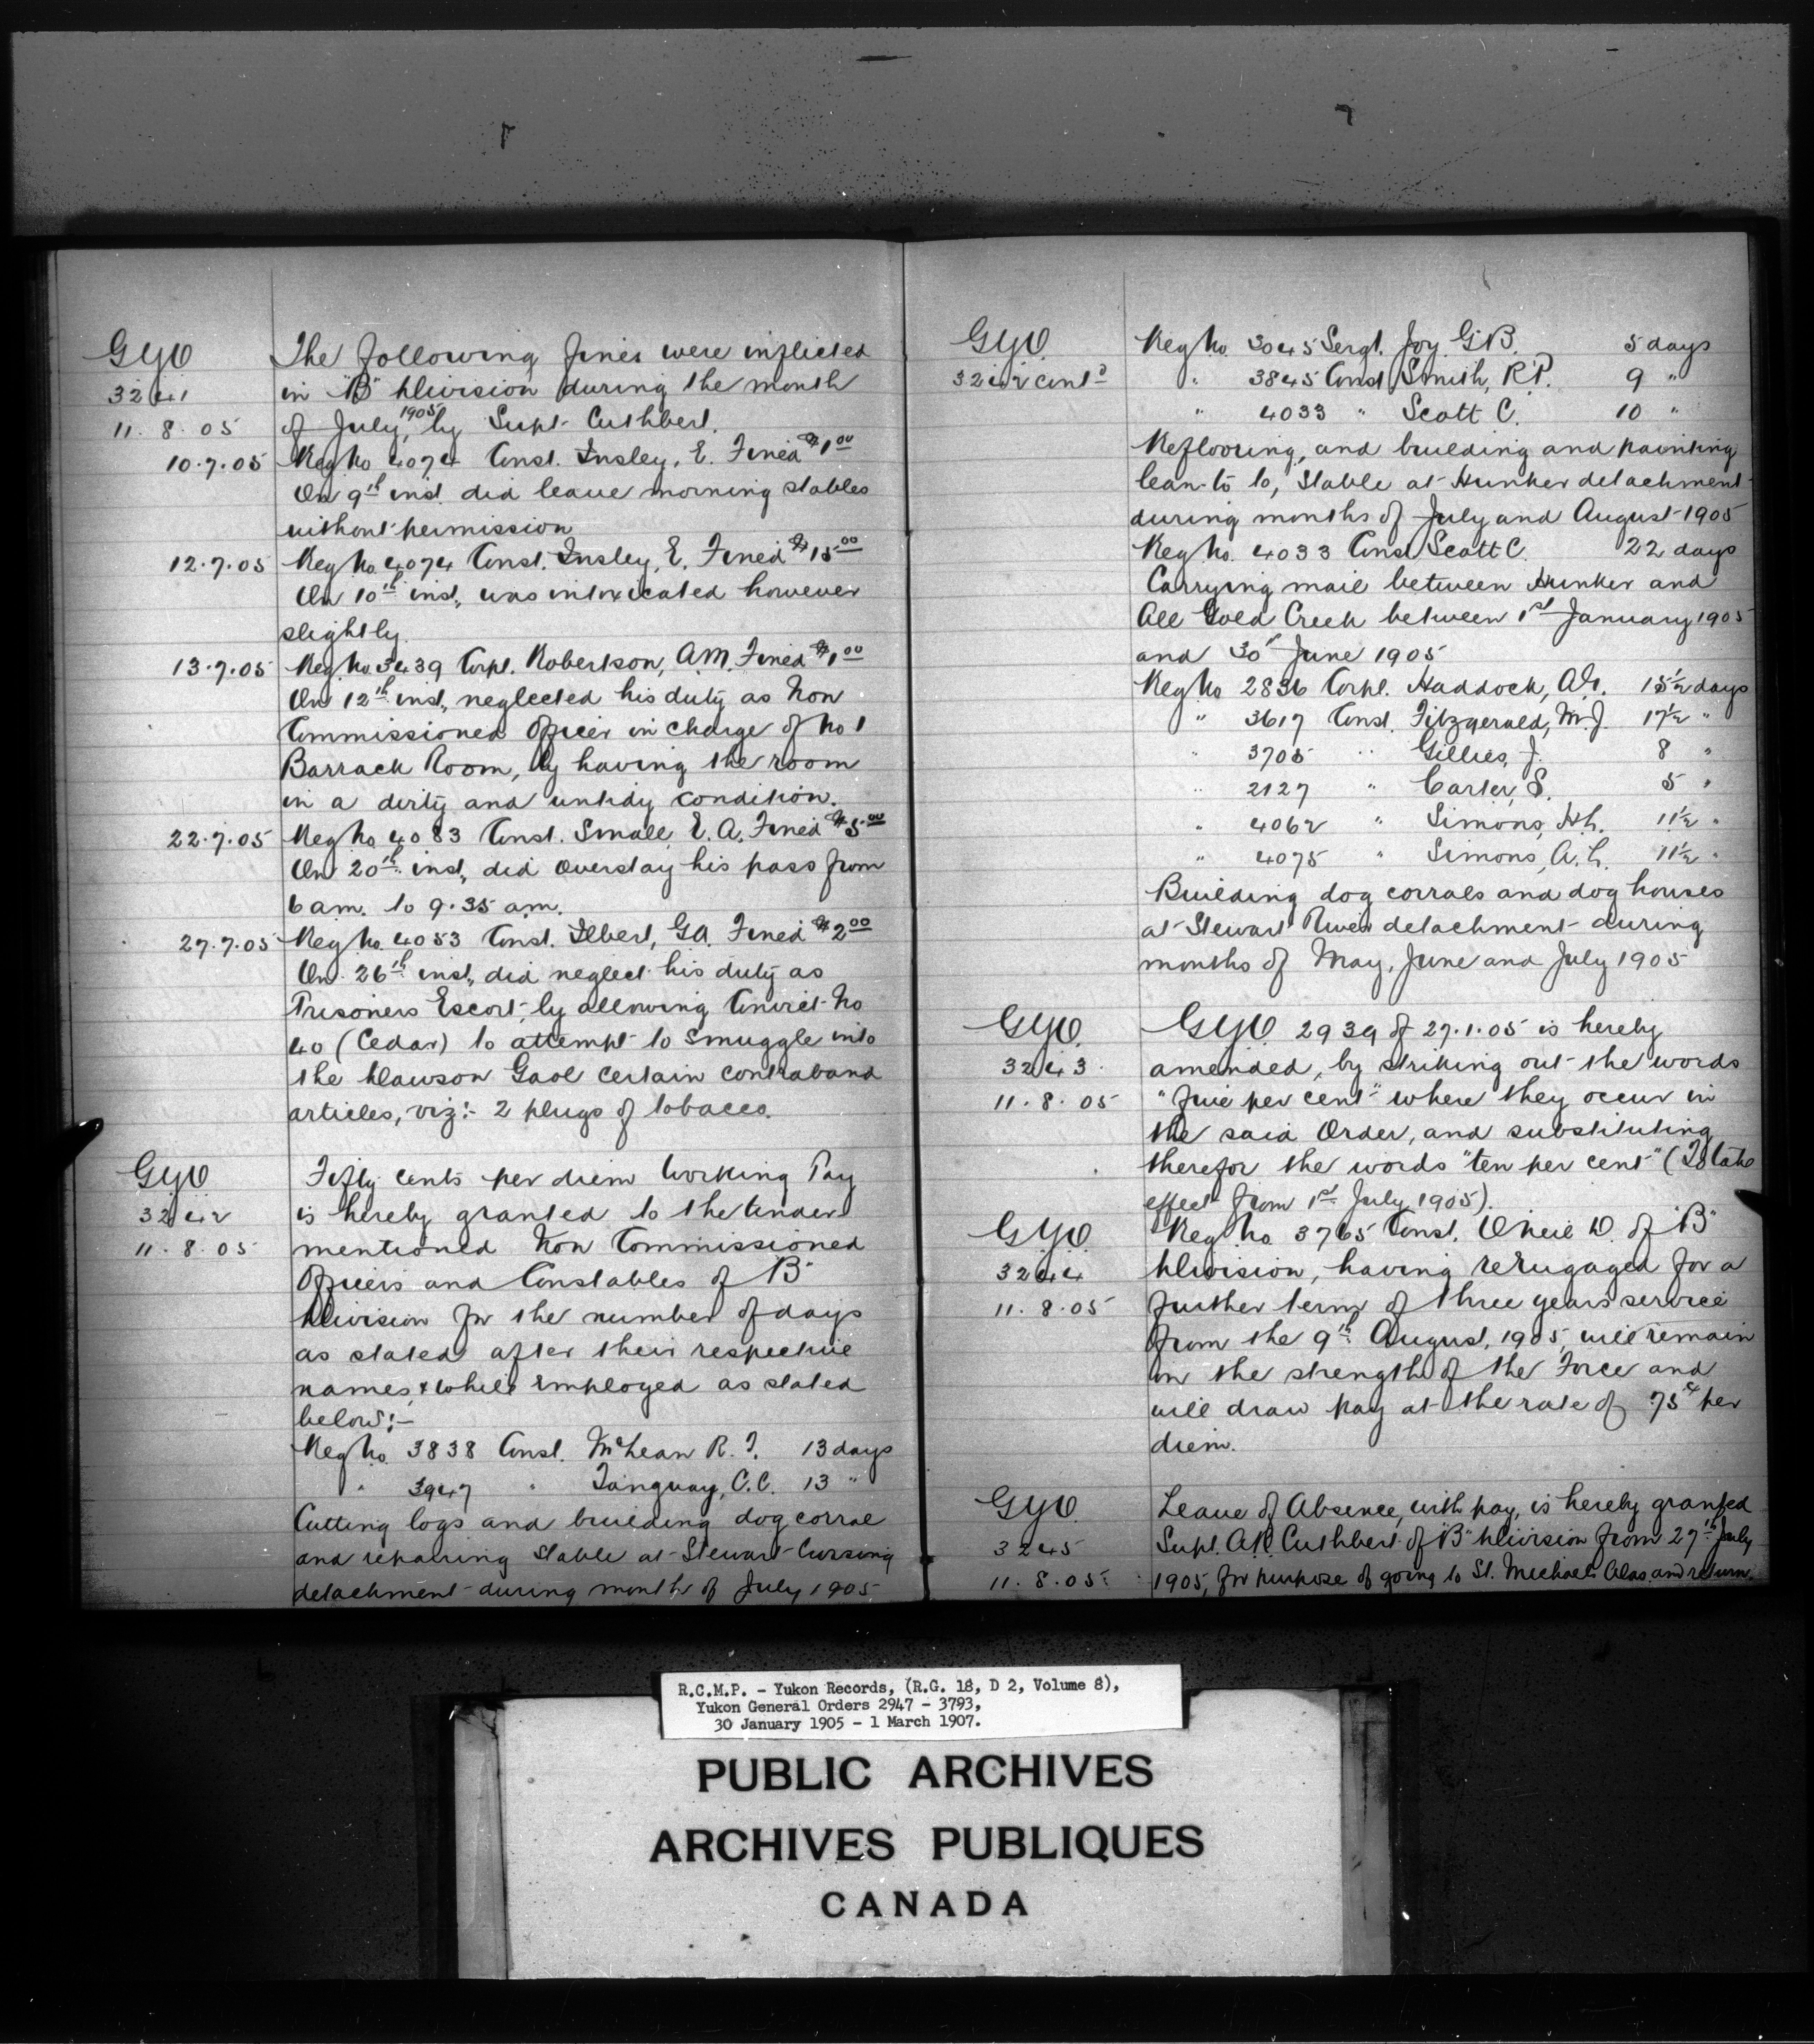 GYO The following fines were inflicted
3241 in "B" Division during the month
11.8.05 of July, 1905 by Supt. Cuthbert.
10.7.05 Reg No 4074 Const. Insley, E. Fined $1.00
On 9th inst. did leave morning stables
without permission
12.7.05 Reg No. 4074 Const. Insley, E. Fined $15.00
On 10th inst., was intoxicated however
slightly.
13.7.05 Reg. No. 3439 Corpl. Robertson, A.M. Fined $1.00
On 12th inst., neglected his duty as Non
Commissioned Officer in charge of No 1
Barrack Room, by having the room
in a dirty and untidy condition.
22.7.05 Reg No. 4083 Const. Small, E. A. Fined $5.00
On 20th inst., did overstay his pass from
6 am. to 9.35 am.
27.7.05 Reg No. 4053 Const. Ilbert, G.A. Fined $2.00
On 26th inst., did neglect his duty as
Prisoners Escort, by allowing Convict No
40 (Cedar) to attempt to smuggle into
the Dawson Gaol certain contraband
articles, viz:- 2 plugs of tobacco.
GYO Fifty cents per diem Working Pay
3242 is hereby granted to the under
11.8.05 mentioned Non Commissioned
Officers and Constables of "B"
Division for the number of days
as stated after their respective
names, & while employed as stated
below:-
Reg No. 3838 Const. McLean R. T. 13 days
" 3947 " Tanguay, C.C. 13 "
Cutting logs and building dog corral
and repairing stable at Stewart Crossing
detachment during month of July 1905
GYO. Reg No. 3045 Sergt. Joy G.B. 5 days
3242 contd " 3845 Const Smith, R.P. 9 "
" 4033 " Scott C. 10 "
Reflooring, and building and painting
lean-to to, stable at Hunker detachment
during months of July and August 1905
Reg No. 4033 Const Scott C. 22 days
Carrying mail between Hunker and
All Gold Creek between 1st January 1905
and 30th June 1905
Reg No 2836 Corpl. Haddock, A.G. 15½ days
" 3617 Const. Fitzgerald, M.J. 17½ "
" 3705 " Gillies, J. 8 "
" 2127 " Carter, S. 5 "
" 4062 " Simons, H.L. 11½ "
" 4075 " Simons, A.L. 11½ "
Building dog corrals and dog houses
at Stewart River detachment during
months of May, June and July 1905
GYO. GYO. 2939 of 27.1.05 is hereby
3243. amended, by striking out the words
11.8.05 "five per cent" where they occur in
the said Order, and substituting
therefor the words "ten per cent" (To take
effect from 1st July 1905).
GYO. Reg. No. 3765 Const. O'Neil D. of "B"
3244 Division, having reengaged for a
11.8.05 further term of three years service
from the 9th August, 1905, will remain
on the strength of the Force and
will draw pay at the rate of 75¢ per
diem.
GYO. Leave of Absence, with pay, is hereby granted
3245 Supt. A.E. Cuthbert of "B" Division from 27th July
11.8.05. 1905, for purpose of going to St. Michaels Alas. and return.
R.C.M.P. - Yukon Records, (R.G. 18, D 2, Volume 8),
Yukon General Orders 2947 - 3793,
30 January 1905 - 1 March 1907.
PUBLIC ARCHIVES
ARCHIVES PUBLIQUES
CANADA